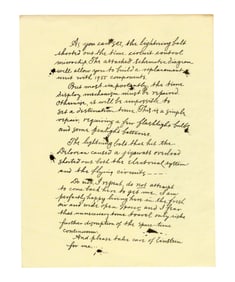 As you can see, the lightning bolt
shorted out the time circuit control
microchip. The attached schematic diagram
will allow you to build a replacement
unit with 1955 components.
But most importantly, the time
display mechanism must be repaired.
Otherwise, it will be impossible to
set a destination time. This is a simple
repair, requiring a few flashlight bulbs
and some penlight batteries.
The lightning bolt that hit the
DeLorean caused a gigawatt overload
shorted out both the electrical system
and the flying circuits
Do not, I repeat, do not attempt
to come back here to get me. I am
perfectly happy living here in the fresh
air and wide open spaces, and I fear
that unnecessary time travel only risks
further disruption of the space-time
continuum.
And please take care of Einstein
for me.